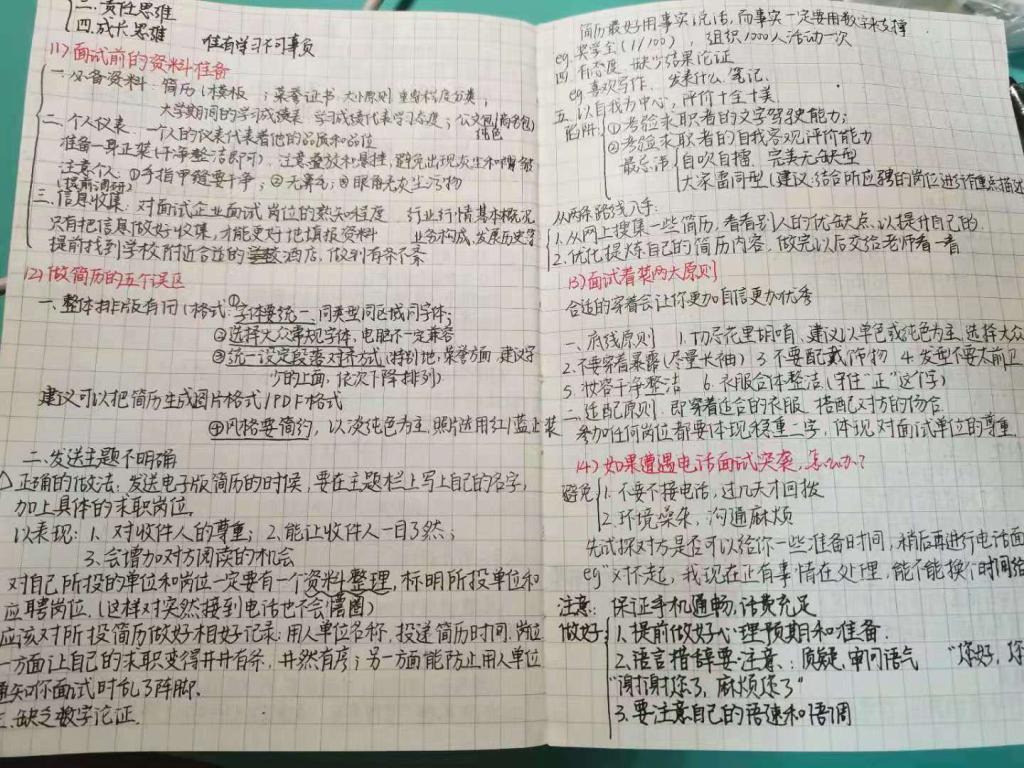 三.责任思维
四.成长思维
唯有学习不可辜负
(1)面试前的资料准备
一.必备资料:简历(模板 ;荣誉证书.大小原则 重要程度分类;
大学期间的学习成绩表 学习成绩代表学习态度;公文包(商务包)
纯色
二.个人仪表.一个人的仪表代表着他的品质和品位
准备一身正装(干净整洁即可).注意叠放和悬挂,避免出现灰尘和褶皱
注意个人:①手指甲缝要干净;②无鼻毛;③眼角无灰尘污物
(提前调研)
三.信息收集:对面试企业面试岗位的熟知程度 行业行情基本概况
只有把信息做好收集,才能更好地填报资料 业务构成,发展历史等
提前找到学校附近合适的酒店,做到有条不紊
(2)做简历的五个误区
一.整体排版有问(格式:①字体要统一.同类型同区域同字体;
②选择大众常规字体,电脑不一定兼容
③统一设定段落对齐方式,(特别地:荣誉方面,建议字
少的上面,依次下降排列)
建议可以把简历生成图片格式/PDF格式
④风格要简约,以淡纯色为主.照片选用红/蓝正装
二.发送主题不明确
正确的做法:发送电子版简历的时候,要在主题栏上写上自己的名字,
加上具体的求职岗位.
以表现:1.对收件人的尊重;2.能让收件人一目了然;
3.会增加对方阅读的机会
对自己所投的单位和岗位一定要有一个资料整理,标明所投单位和
应聘岗位.(这样对突然接到电话也不会懵圈)
应该对所投简历做好相好记录:用人单位名称,投递简历时间.岗位
一方面让自己的求职变得井井有条,井然有序;另一方面能防止用人单位
通知你面试时乱了阵脚.
三.缺乏数字论证.
简历最好用事实说话,而事实一定要用数字来支撑
eg.奖学金(1/100),组织1000人活动一次
四.有态度.缺少结果论证
eg.喜欢写作.发表什么笔记.
五.以自我为中心,评价十全十美
陷阱:①考验求职者的文字驾驶能力;
②考验求职者的自我客观评价能力
最忌讳 自吹自擂,完美无缺型
大家雷同型(建议:结合所应聘的岗位进行重点描述
从两条路线入手:
1.从网上搜集一些简历,看看别人的优缺点,以提升自己的.
2.优化提炼自己的简历内容.做完以后交给老师看一看
(3)面试着装两大原则
合适的穿着会让你更加自信更加优秀
一.底线原则 1.切忌花里胡哨,建议以单色或纯色为主,选择大众
2.不要穿着暴露(尽量长袖) 3.不要配戴饰物 4.发型不要太前卫
5.妆容干净整洁 6.衣服合体整洁(守住“正”这个字)
二.适配原则.即穿着适合的衣服 搭配对方的场合
参加任何岗位都要体现稳重二字,体现对面试单位的尊重.
(4)如果遭遇电话面试突袭,怎么办?
避免 1.不要不接电话,过几天才回拨
2.环境嘈杂,沟通麻烦
先试探对方是否可以给你一些准备时间,稍后再进行电话面
eg“对不起,我现在正有事情在处理,能不能换个时间给
注意:保证手机通畅,话费充足
做好 1.提前做好心理预期和准备.
2.语言措辞要注意.:质疑,审问语气 “您好,您
“谢谢您了,麻烦您了”
3.要注意自己的语速和语调